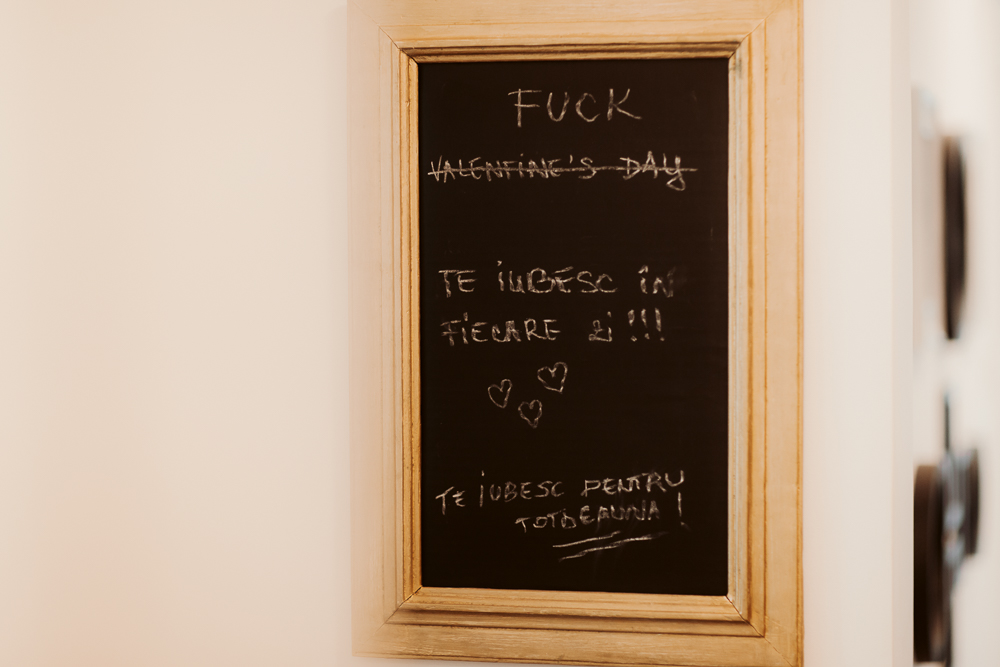 FUCK
VALENTINE'S DAY
TE IUBESC ÎN
FIECARE ZI !!!
TE IUBESC PENTRU
TOTDEAUNA !